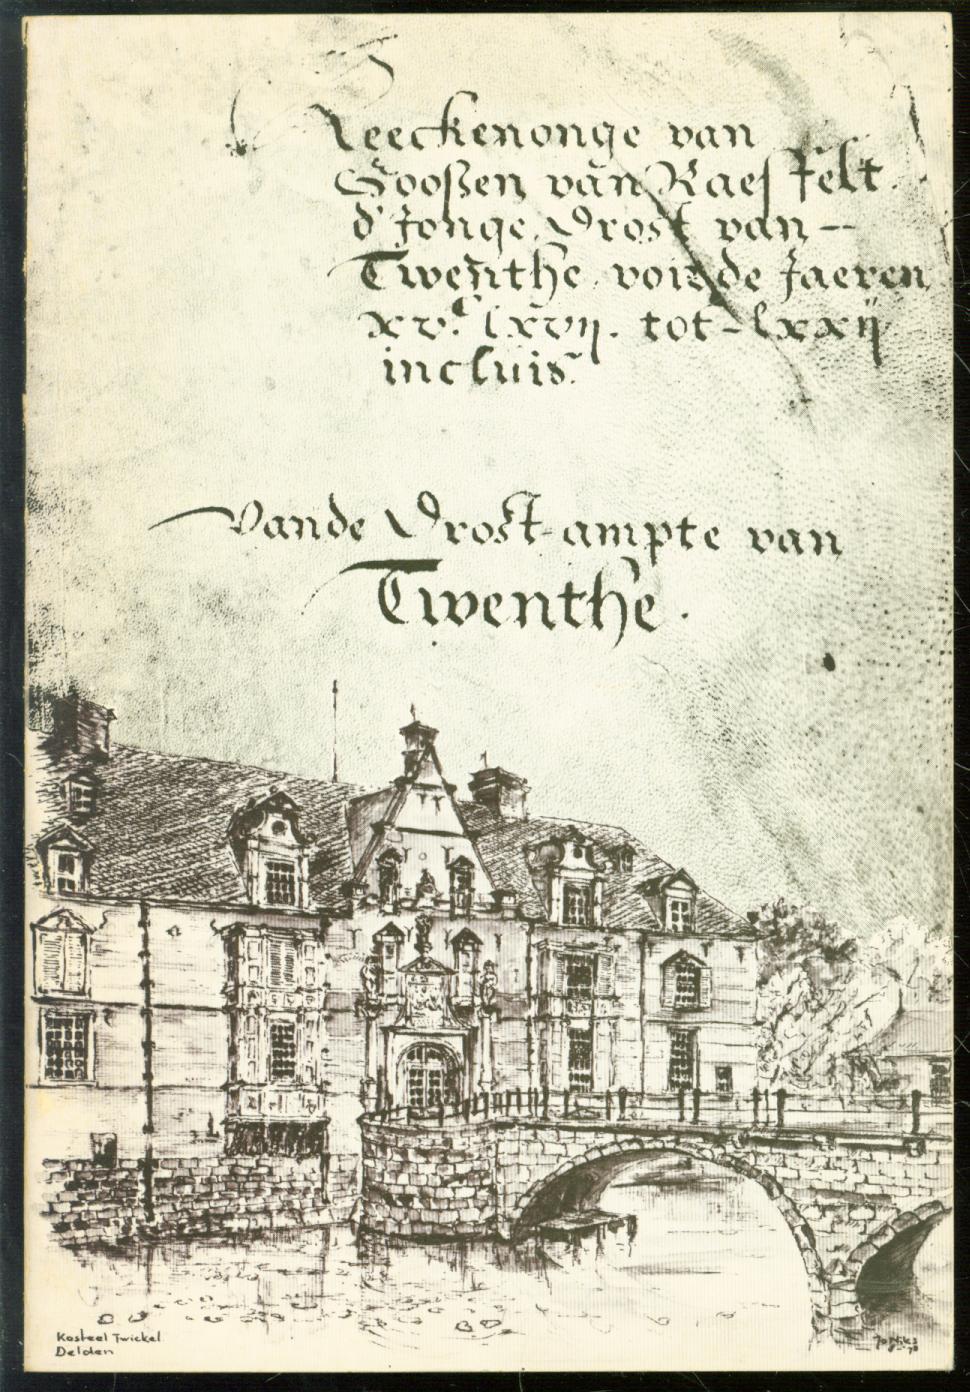 Reeckenonge van
Gooßen van Raesfelt
d' Jonge Drost van --
Twenthe. voir de Jaeren
xvᶜ lxvij. tot - lxxij
incluis.
Vande Drost-ampte van
Twenthe.
Kasteel Twickel
Delden